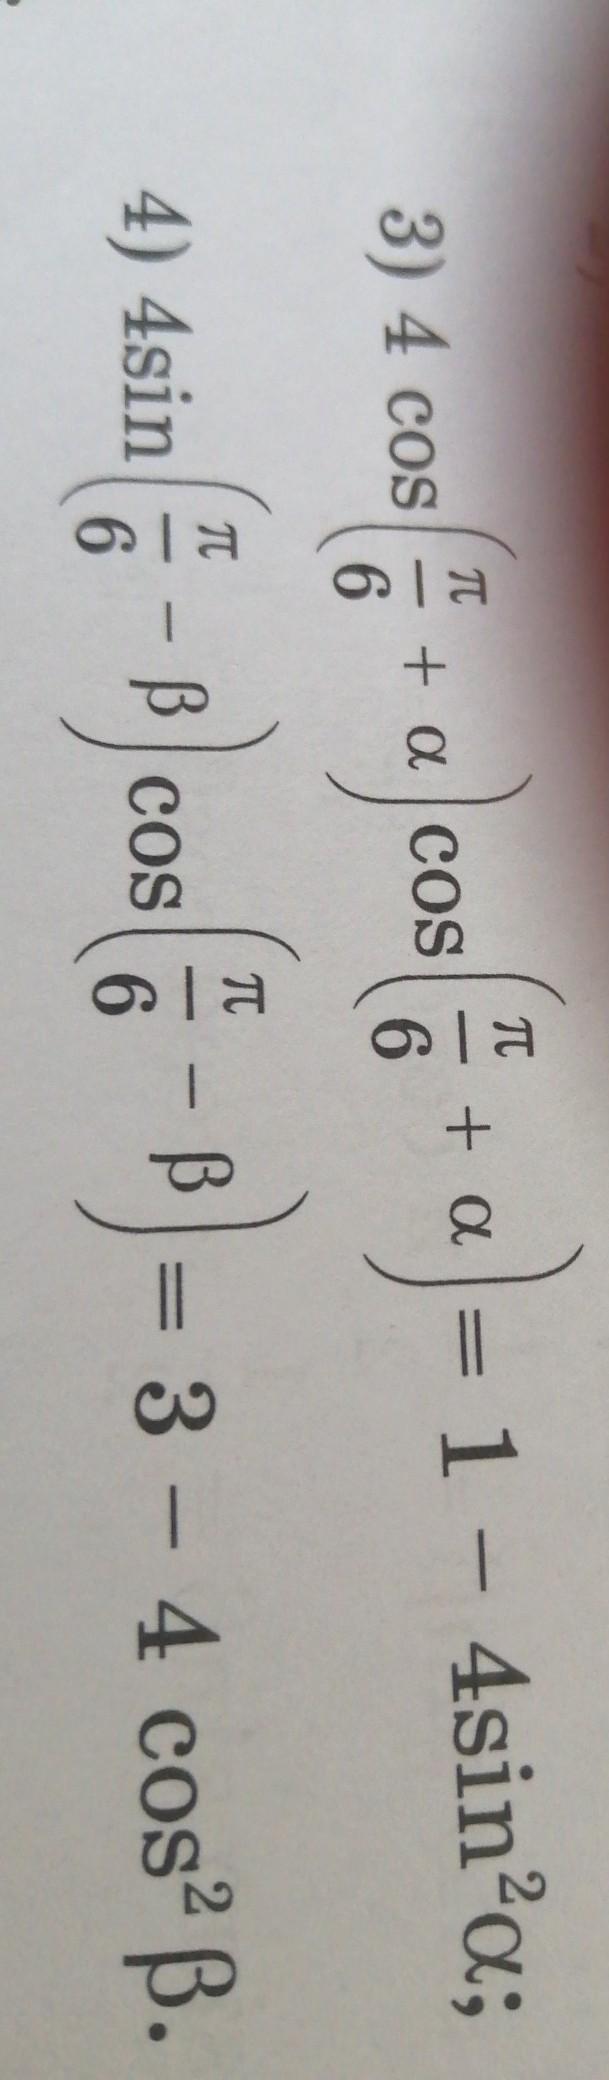 3) 4 cos(π/6 + α)cos(π/6 + α) = 1 − 4sin²α;
4) 4sin(π/6 − β)cos(π/6 − β) = 3 − 4 cos² β.